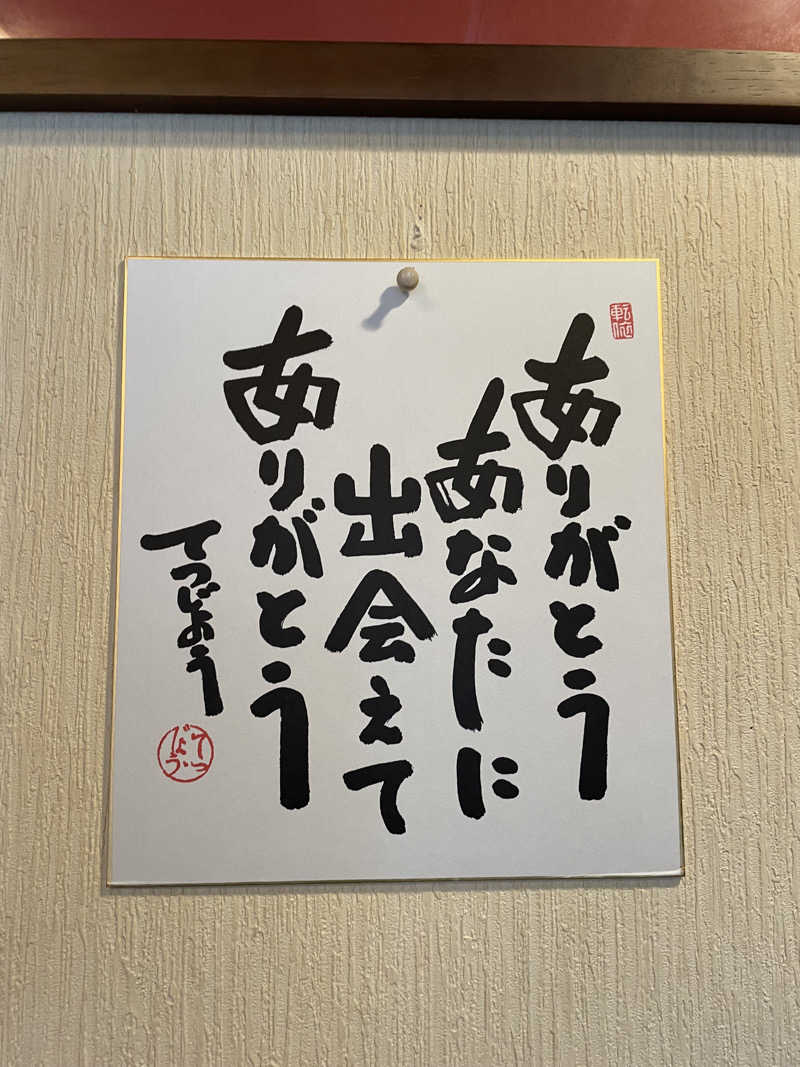 ありがとう
あなたに
出会えて
ありがとう
てつじょう
てつじょう